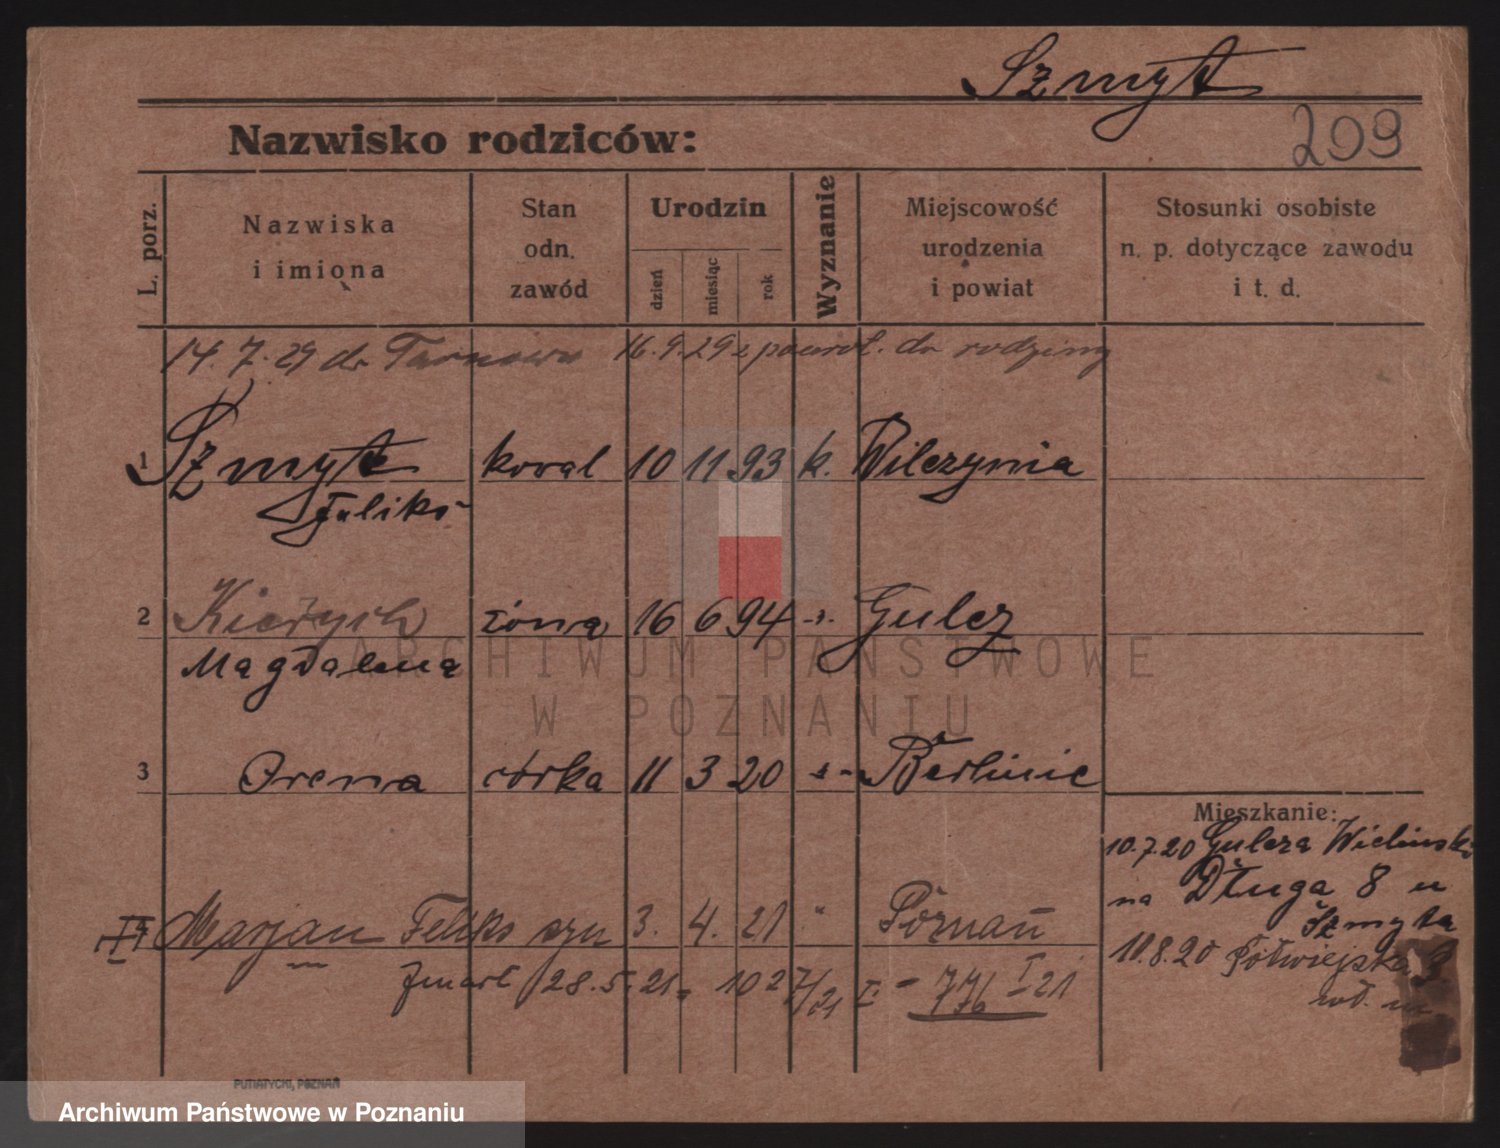 Szmyt
Nazwisko rodziców:
209
L. porz.
Nazwiska
i imiona
Stan
odn.
zawód
Urodzin
dzień
miesiąc
rok
Wyznanie
Miejscowość
urodzenia
i powiat
Stosunki osobiste
n. p. dotyczące zawodu
i t. d.
14.7.29 do Tarnowa 16.9.29 z powrot. do rodziny
1 Szmyt koval 10 11 93 k. Wilczynia
Feliks
2 żona 16 6 94 Gulcz
Magdalena
3 Irena córka 11 3 20 Berlinie
Mieszkanie:
10.7.20 Gulcza Wieliński
na Długa 8 u
Szmyta
4 Marjan Feliks syn 3. 4. 21 " Poznań
10.8.20 Półwiejska 3
zmarł 28.5.21 776 I 21
PUTIATYCKI, POZNAŃ
ARCHIWUM PAŃSTWOWE
W POZNANIU
Archiwum Państwowe w Poznaniu